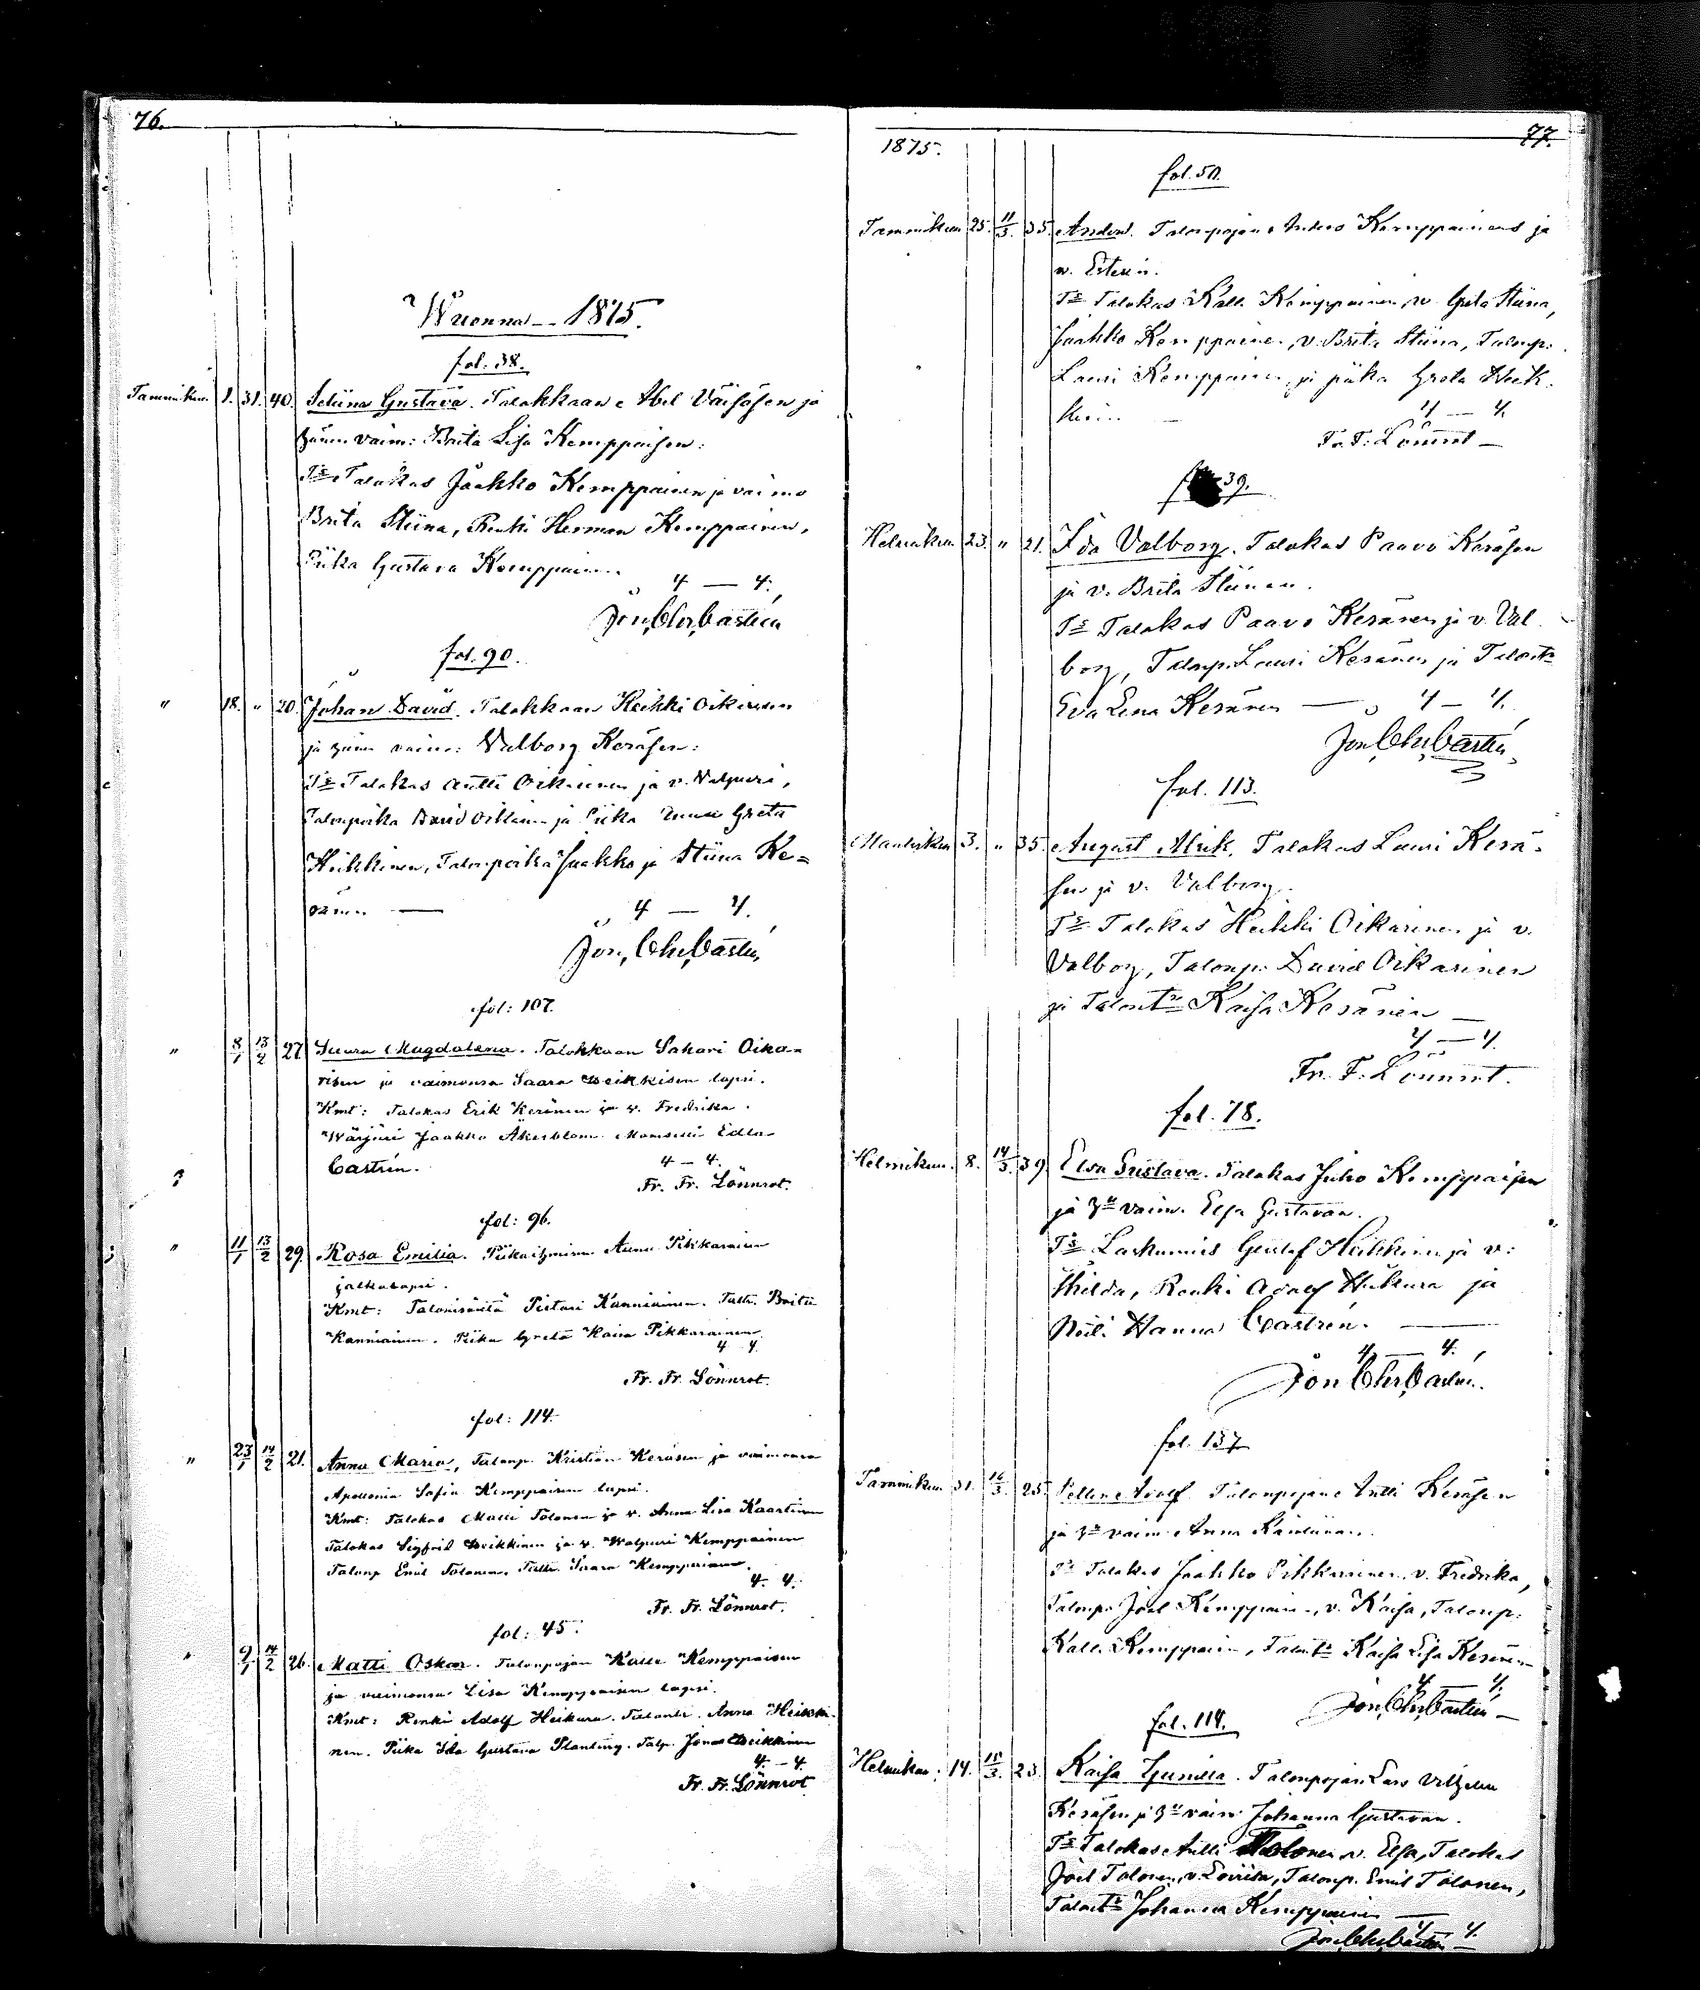 76.
Wuonna -- 1875.
fol. 38.
Tammikuu. 1. 31. 40. Stiina Gustava. Talokkaan Abel Väisäsen ja
hänen vaim: Brita Lisa Kemppaisen:
Ts Talokas Jaakko Kemppainen ja vaimo
Brita Stiina, Renki Herman Kemppainen,
Piika Gustava Kemppainen.
4 — 4.
Jon, Chr, Castrén
fol. 90.
" 18. " 20. Johan David. Talokkaan Heikki Oikarisen
ja hänen vaimo: Valborg Keräsen:
Ts Talokas Antti Oikarinen ja v. Valpuri,
Talonpoika David Oikarinen ja Piika Anna Greta
Heikkinen, Talonpoika Jaakko ja Stiina Ke=
ränen —
4 — 4.
Jon, Chr, Castrén,
fol: 107.
" 8/1 13/2 27 Saara Magdalena. Talokkaan Sakari Oika=
risen ja vaimonsa Saara Heikkisen lapsi.
Kmt: Talokas Erik Keränen ja v. Fredrika.
Wärjäri Jaakko Åkerblom. Mamselli Edla
Castrén.
4 — 4.
Fr. Fr. Lönnrot.
fol: 96.
" 11/1 13/2 29. Rosa Emilia. Piika itsellisen Anna Pikkaraisen
jalkalapsi.
Kmt: Talonisäntä Pietari Kanniainen. Talt. Brita
Kanniainen. Piika Greta Kaisa Pikkarainen.
4 4.
Fr. Fr. Lönnrot.
fol: 114.
" 23/1 14/2 21. Anna Maria, Talonp. Kristian Keräsen ja vaimonsa
Apollonia Sofia Kemppaisen lapsi.
Kmt: Talokas Matti Tolonen ja v. Anna Lisa Kaartinen
Talokas Sigfrid Heikkinen ja v. Walpuri Kemppainen
Talonp Emil Tolonen. Talt. Saara Kemppainen.
4. 4.
Fr. Fr. Lönnrot.
fol: 45.
" 9/1 14/2 26. Matti Oskar. Talonpojan Kalle Kemppaisen
ja vaimonsa Lisa Kemppaisen lapsi.
Kmt: Renki Adolf Heikura. Talont. Anna Heikki-
nen. Piika Ida Gustava Planting. Talp. Jonas Heikkinen
4. — 4.
Fr. Fr. Lönnrot
77.
1875.
fol. 50.
Tammikuu 25. 11/3. 35. Anders. Talonpojan Anders Kemppainens ja
v. Esterin.
Ts Talokas Kalle Kemppainen, v. Greta Stiina,
Jaakko Kemppainen, v. Brita Stiina, Talonp:
Lauri Kemppainen ja piika Greta Heik.
kinen
4 — 4.
Fr. F. Lönnrot —
39.
Helmikuu 23. " 21. Ida Valborg. Talokas Paavo Keräsen
ja v. Brita Stiinan.
Ts Talokas Paavo Keränen ja v. Val
borg, Talonp. Lauri Keränen ja Talont
Eva Lena Keränen —
4 — 4.
Jon Chr, Castrén,
fol. 113.
Maaliskuu 3. " 35. August Alrik. Talokas Lauri Kerä-
sen ja v. Valborg.
Ts Talokas Heikki Oikarinen ja v.
Valborg, Talonp. David Oikarinen
ja Talont Kaisa Keränen —
4 — 4.
Fr. F. Lönnrot.
fol. 78.
Helmikuu. 8. 14/3. 39. Elsa Gustava. Talokas Juho Kemppaisen
ja vaim. Elsa Gustavan.
Ts Gustaf Heikkinen ja v:
Hilda, Renki Adolf Heikura ja
Neiti Hanna Castrén. —
4 — 4.
Jon Chr, Castrén.
fol. 137
Tammikuu 31. 14/3. 25. Adolf. Talonpojan Antti Keräsen
ja vaim Anna
Ts Talokas Jaakko Pikkarainen, v. Fredrika,
Talonp. Joel Kemppainen, v. Kaisa, Talonp:
Kalle Kemppainen, Talont Kaisa Lisa Keränen
4 — 4.
Jon, Chr, Castrén —
fol. 114.
Helmikuu. 14. 15/3. 23. Kaisa Gunilla. Talonpojan Lars Vilhelm
Keräsen ja vaim Johanna Gustavan.
Ts Talokas Antti Tolonen v. Elsa, Talokas
Joel Tolonen, v. Loviisa, Talonp. Emil Tolonen,
Talont Johanna Kemppainen —
4 — 4.
Jon Chr, Castrén